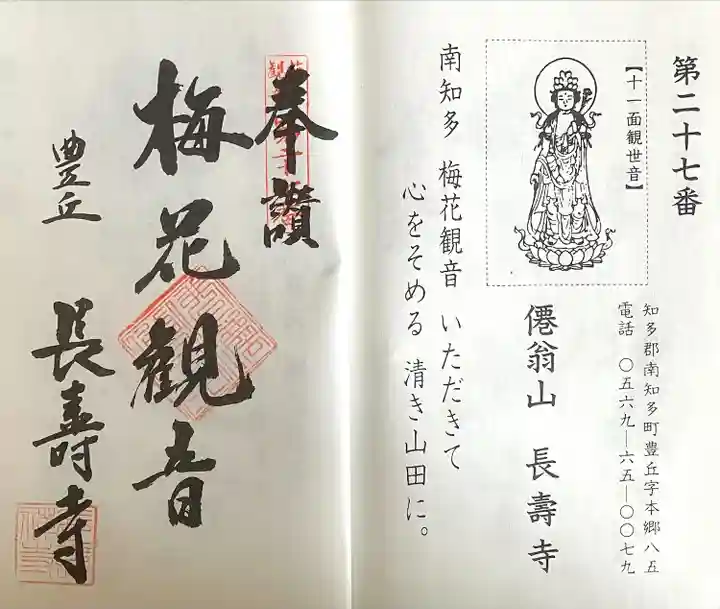 第二十七番
【十一面観世音】
知多郡南知多町豊丘字本郷八五
電話　〇五六九―六五―〇〇七九
僊翁山　長壽寺
南知多　梅花観音　いただきて
心をそめる　清き山田に。
奉讃
梅花観音
豊丘　長壽寺